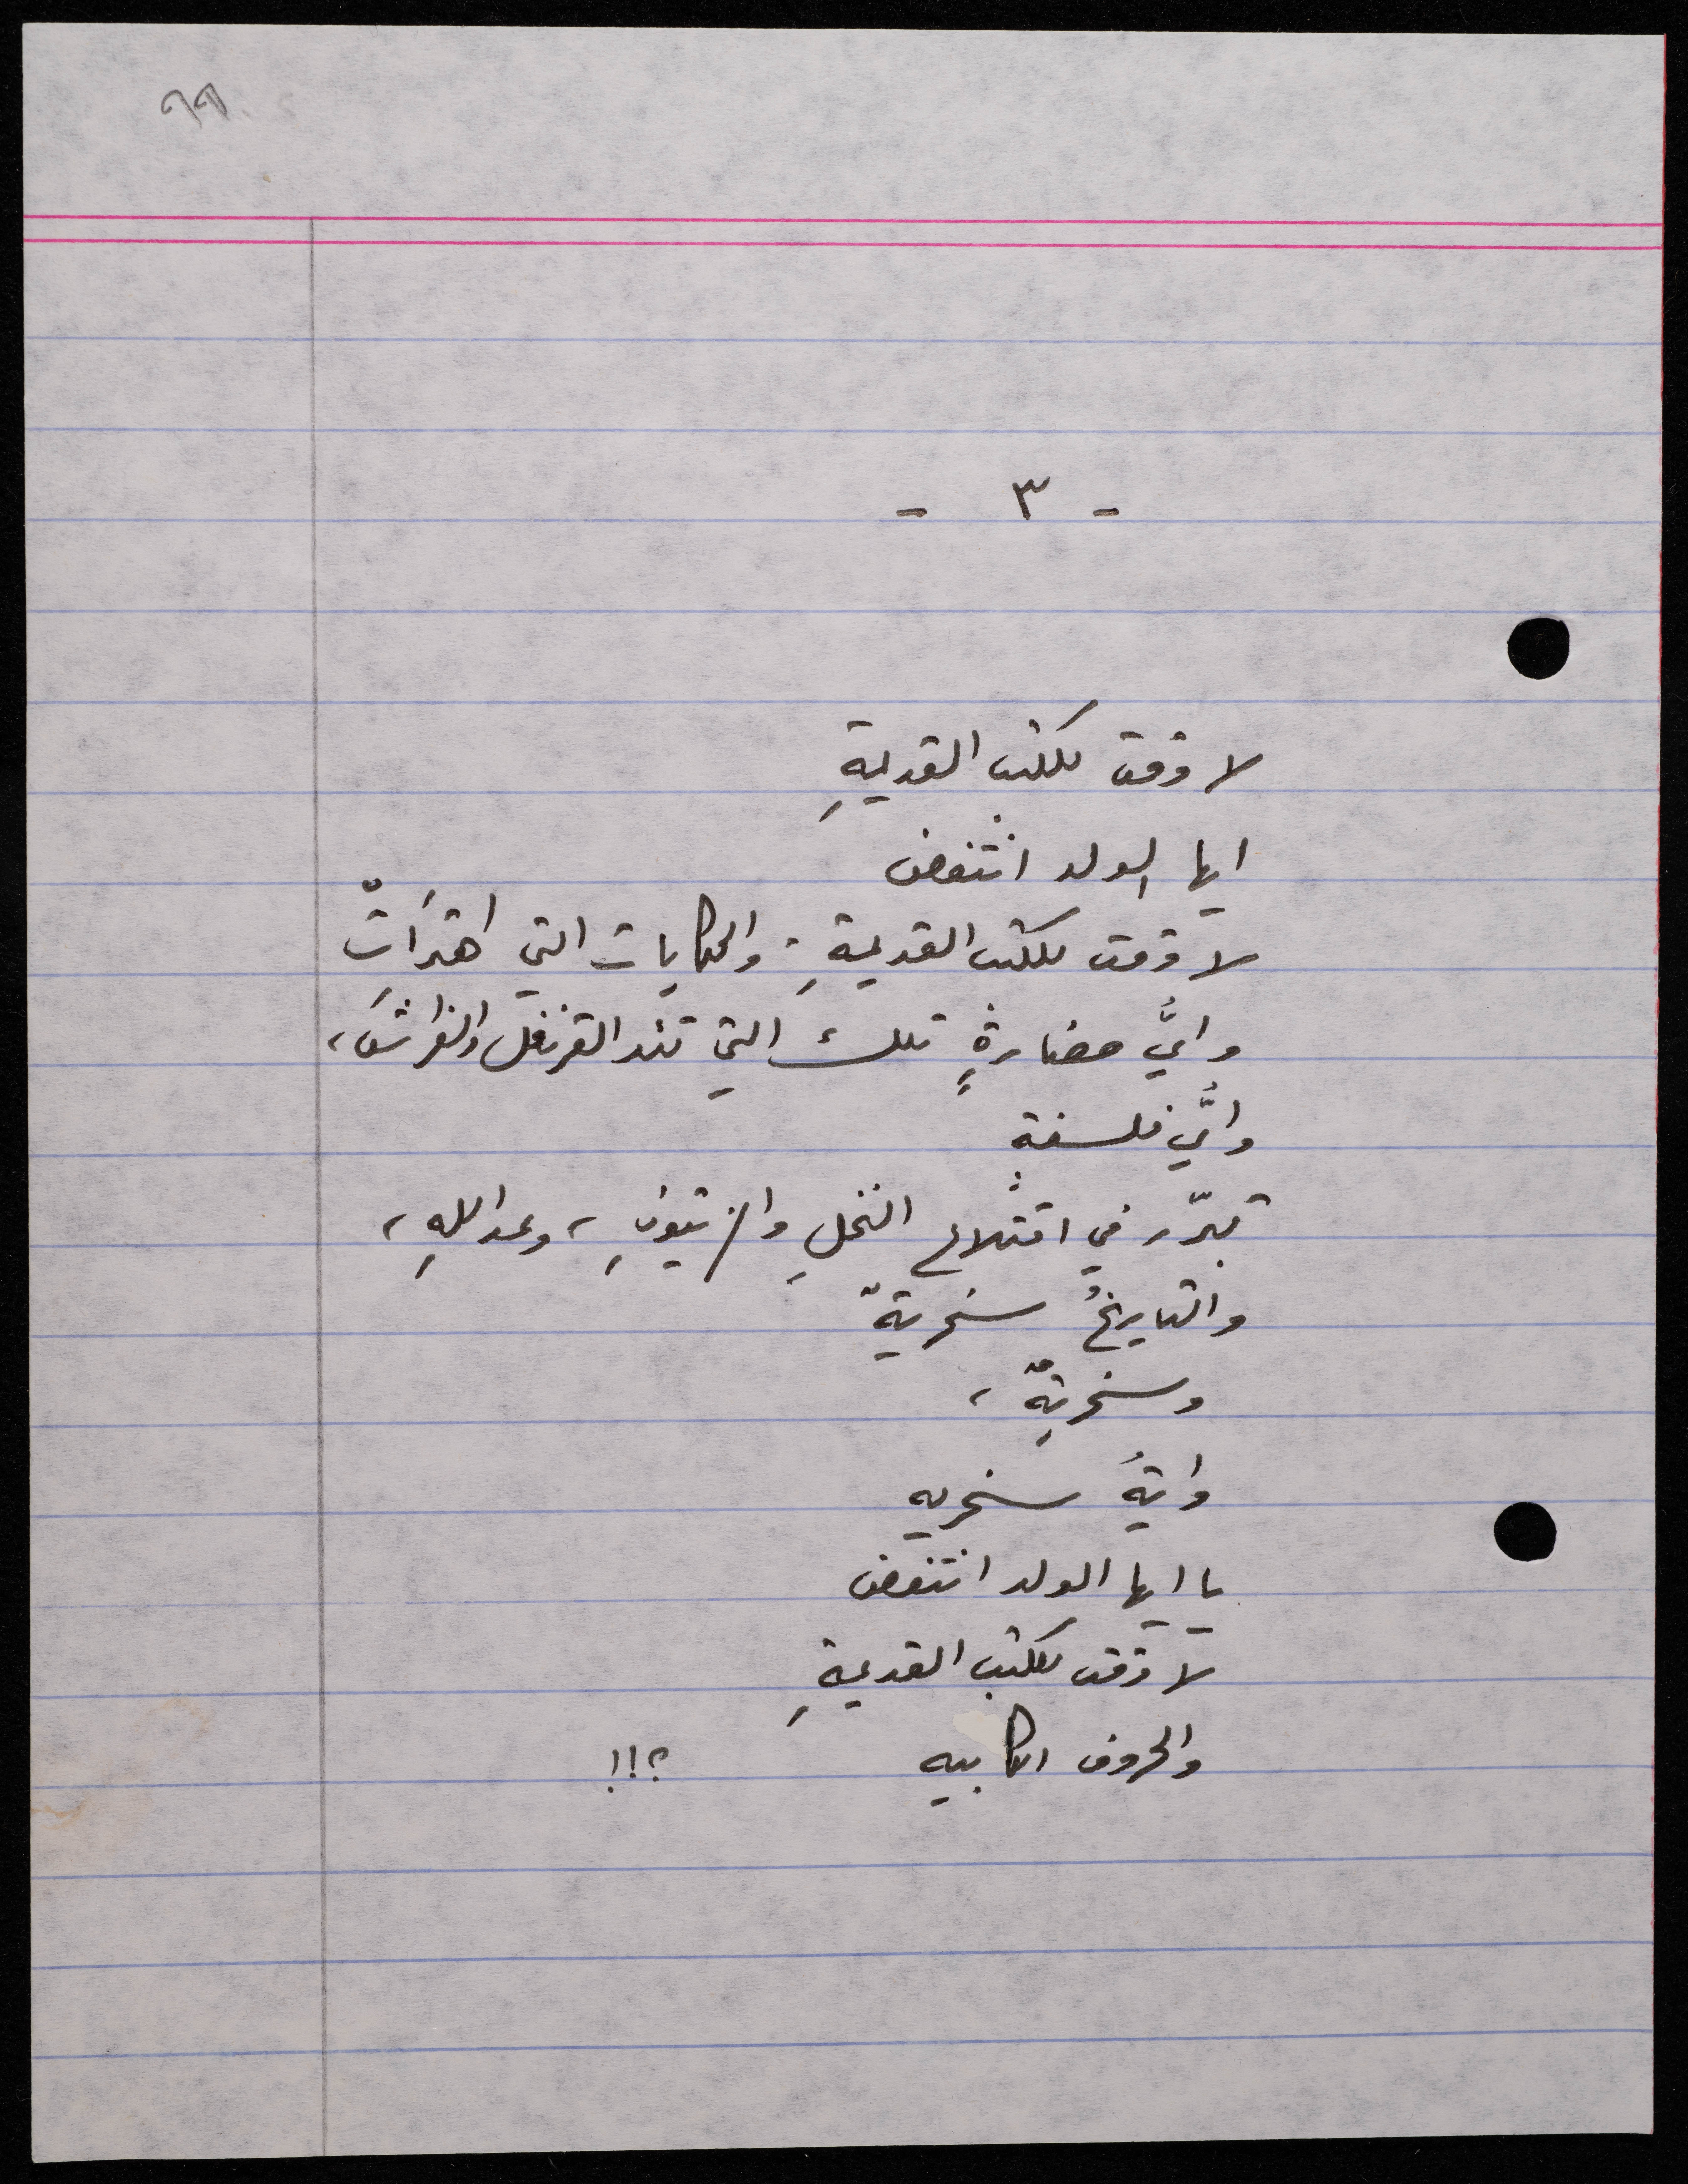 ٩٩
- ٣ -
لا وقت للكتب القديمةِ
ايها الولد انتفض
لا وقت للكتب القديمةِ، والحكايات التي اهترأتْ
وايُّ حضارةٍ تلك التي تئد القرنفل والفراشَ،
وايُّ فلسفة
تبرّر في اقتلاع النخلِ والزيتونِ، وعد اللهِ،
والتاريخُ سخريةٌ
وسخريةٌ،
وايةُ سخريه
يا ايها الولد انتفض
لا وقت للكتب القديمةِ
والحروف الكابيه ؟!!